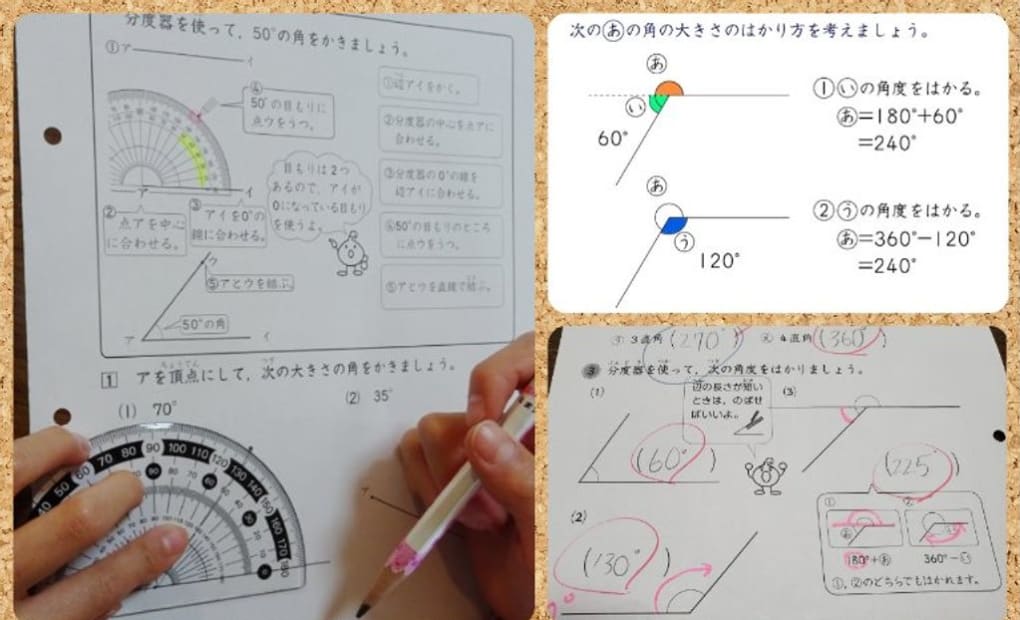 分度器を使って，50°の角をかきましょう。
①ア
イ
④
50°の目もりに
点ウをうつ。
ア
イ
②
点アを中心
に合わせる。
③
アイを0°の
線に合わせる。
目もりは2つ
あるので，アイが
0になっている目もり
を使うよ。
ウ
⑤アとウを結ぶ。
50°の角
ア
イ
①辺アイをかく。
②分度器の中心を点アに
合わせる。
③分度器の0°の線を
辺アイに合わせる。
④50°の目もりのところ
に点ウをうつ。
⑤アとウを直線で結ぶ。
1 アを頂点にして，次の大きさの角をかきましょう。
ちょうてん
つぎ
(1) 70°
(2) 35°
イ
40 50 60 70 80 90 100 110 120 130 140 150 160 170 180
次のあの角の大きさのはかり方を考えましょう。
あ
い
60°
①いの角度をはかる。
あ=180°+60°
=240°
あ
う
120°
②うの角度をはかる。
あ=360°−120°
=240°
3直角(270°)
4直角(360°)
3 分度器を使って，次の角度をはかりましょう。
(1)
(60°)
辺の長さが短い
ときは，のばせ
ばいいよ。
(3)
(225°)
(2)
(130°)
①
②
180°+あ
360°−い
①，②のどちらでもはかれます。